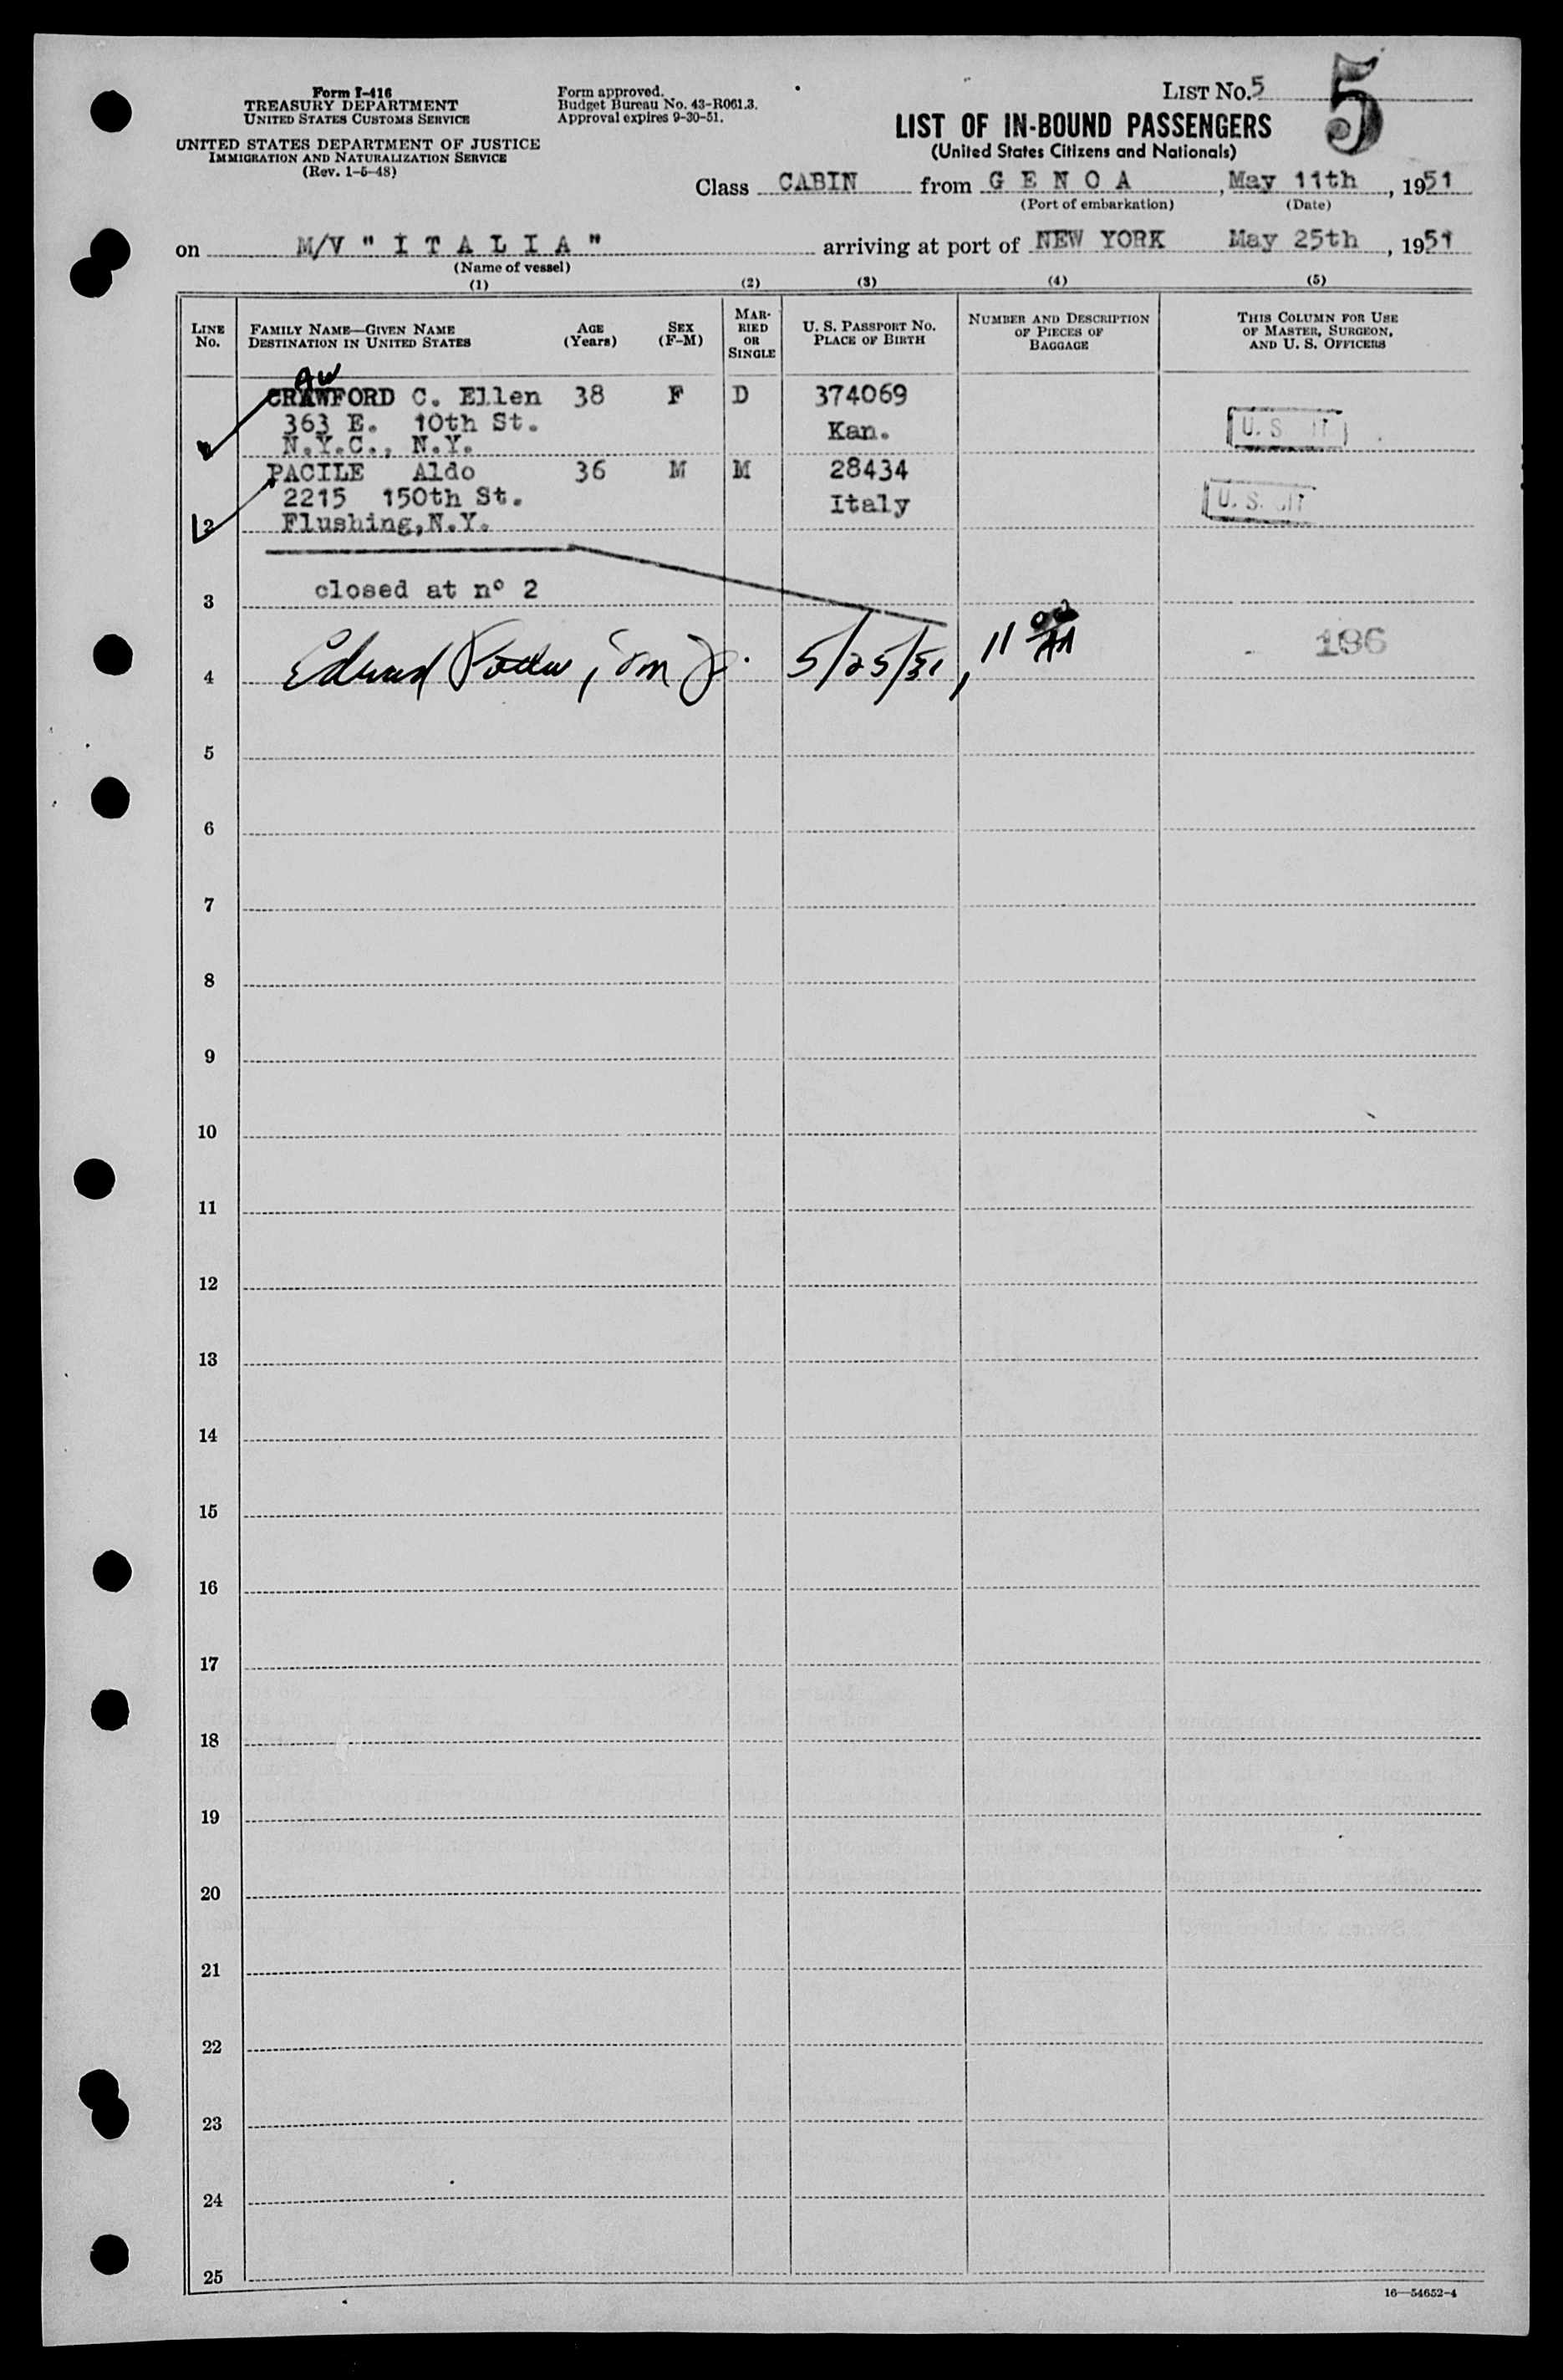 Form I-416
TREASURY DEPARTMENT
UNITED STATES CUSTOMS SERVICE
UNITED STATES DEPARTMENT OF JUSTICE
IMMIGRATION AND NATURALIZATION SERVICE
(Rev. 1-5-48)
Form approved.
Budget Bureau No. 43-R061.3.
Approval expires 9-30-51.
LIST No. 5
5
LIST OF IN-BOUND PASSENGERS
(United States Citizens and Nationals)
Class CABIN from G E N O A, May 11th, 1951
(Port of embarkation) (Date)
on M/V " I T A L I A " arriving at port of NEW YORK May 25th, 1951
(Name of vessel)
(1) (2) (3) (4) (5)
LINE No.
FAMILY NAME—GIVEN NAME
DESTINATION IN UNITED STATES
AGE (Years)
SEX (F-M)
MAR-
RIED
OR
SINGLE
U. S. PASSPORT No.
PLACE OF BIRTH
NUMBER AND DESCRIPTION
OF PIECES OF
BAGGAGE
THIS COLUMN FOR USE
OF MASTER, SURGEON,
AND U. S. OFFICERS
AW
CRAWFORD C. Ellen 38 F D 374069
363 E. 10th St. Kan. U. S IT
N.Y.C., N.Y.
PACILE Aldo 36 M M 28434
2215 150th St. Italy U. S. CIT
2 Flushing,N.Y.
closed at nº 2
3
Edward 5/25/51, 11 00 AM 196
4
5
6
7
8
9
10
11
12
13
14
15
16
17
18
19
20
21
22
23
24
25
16—54652-4